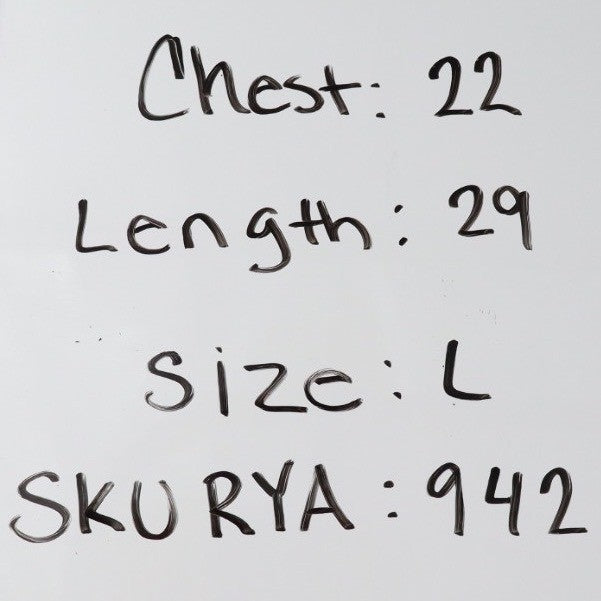 Chest: 22
Length: 29
Size: L
SKURYA: 942